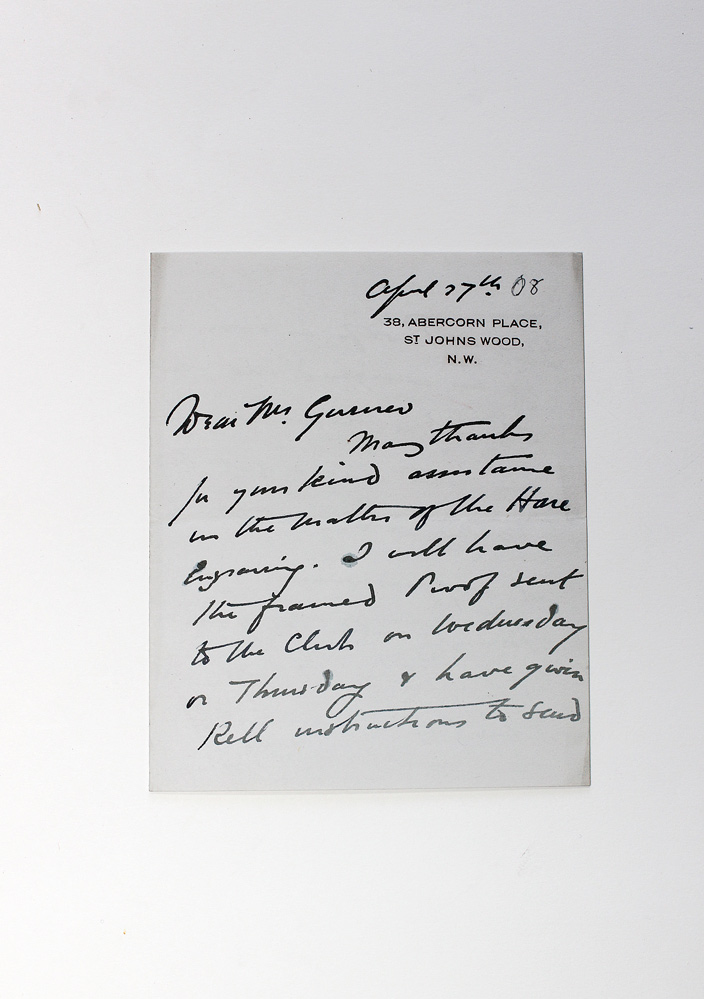 April 27th 08
38, ABERCORN PLACE,
ST JOHNS WOOD,
N.W.
Dear Mr.
Many thanks
for your kind assistance
in the matter of the Hare
Engraving. I will have
the framed Proof sent
to the Club on Wednesday
or Thursday & have given
Rell instructions to send